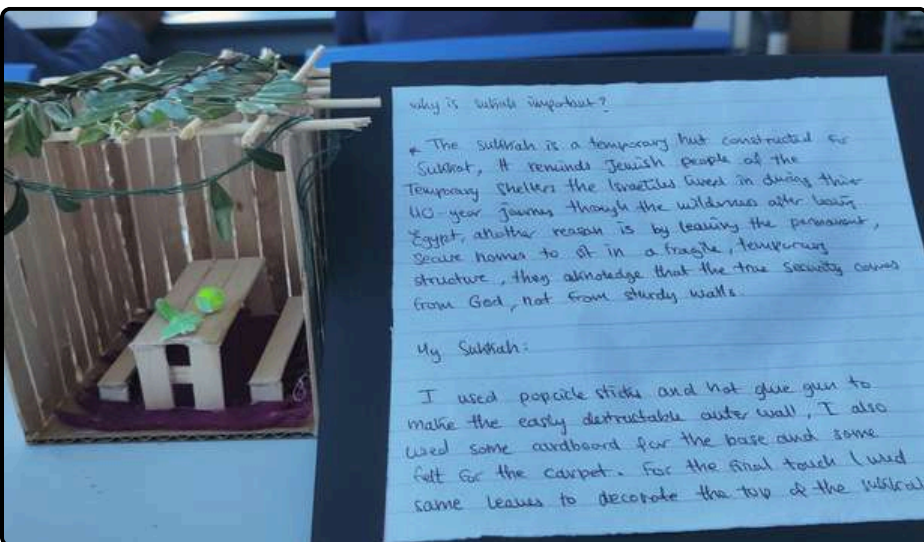 why is sukkah important?
* The sukkah is a temporary hut constructed for
Sukkot, It reminds Jewish people of the
Temporary shelters the Israelites lived in during thier
40-year journey though the wilderness after leaving
Egypt, another reason is by leaving the permanent,
secure homes to sit in a fragile, temporary
structure, they aknoledge that the true security comes
from God, not from sturdy walls.
My Sukkah:
I used popcicle sticks and hot glue gun to
make the easily destructable outer wall, I also
used some cardboard for the base and some
felt for the carpet. For the final touch I used
some leaves to decorate the top of the sukkah